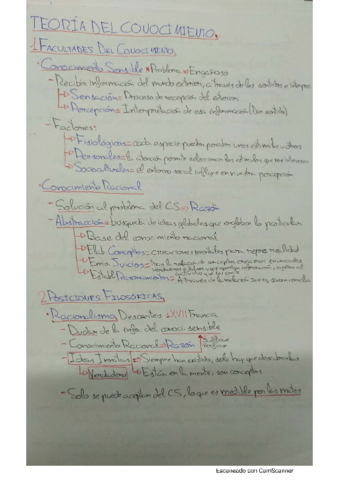 TEORÍA DEL CONOCIMIENTO.
1. FACULTADES DEL CONOCIMIENTO.
· Conocimiento Sensible Problema Engañoso
- Recibir información del mundo exterior, a través de los sentidos e interpre
Sensación: Proceso de recepción del exterior
Percepción: Interpretación de esa información (Dar sentido)
- Factores:
Fisiológicos: cada especie puede percibir unos estímulos u otros
Personales: la atención permite seleccionar los estímulos que nos interesan
Socioculturales: el entorno social influye en nuestra percepción
· Conocimiento Racional
- Solución al problema del CS Razón
- Abstracción: búsqueda de ideas globales que engloban lo particular
Base del conocimiento racional
Elab Conceptos: creaciones mentales para repres realidad
Enun Juicios:
Establ Razonamientos: A través de la relación
2. POSICIONES FILOSÓFICAS.
· Racionalismo, Descartes s.XVII Francia
- Dudan de la info. del conoci. sensible
- Conocimiento Racional Razón
- Ideas Innatas Siempre han existido, solo hay que descubrirlas
Verdad Están en la mente, son conceptos
- Solo se puede aceptar del CS, lo que es medible por las mates
Escaneado con CamScanner